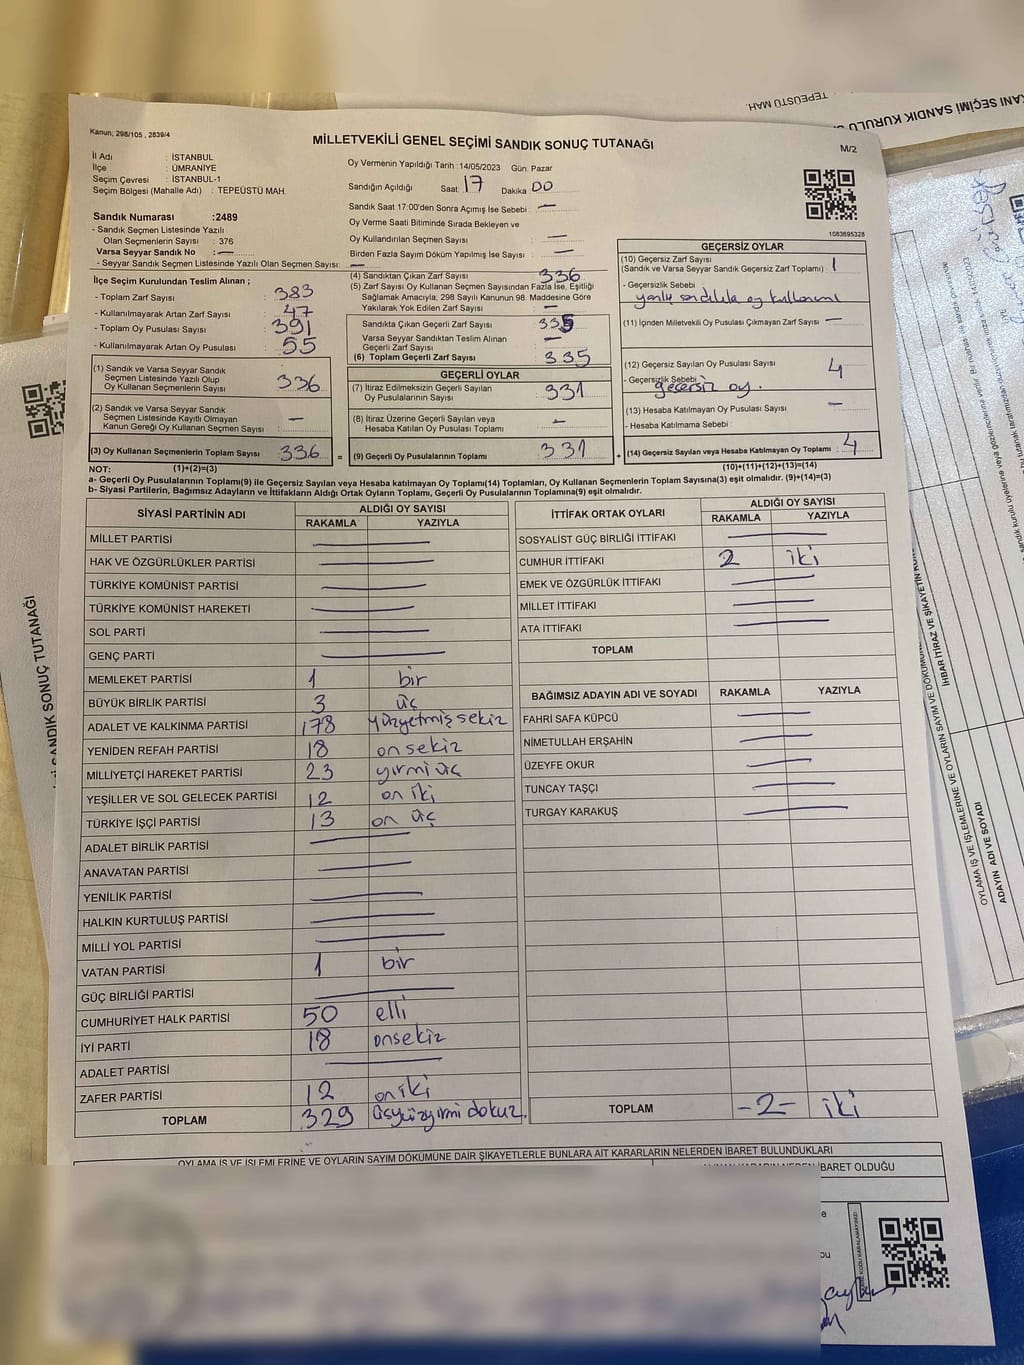 Kanun; 298/105 , 2839/4
MİLLETVEKİLİ GENEL SEÇİMİ SANDIK SONUÇ TUTANAĞI
M/2
İl Adı : İSTANBUL
İlçe : ÜMRANİYE
Seçim Çevresi : İSTANBUL-1
Seçim Bölgesi (Mahalle Adı) : TEPEÜSTÜ MAH.
Sandık Numarası :2489
- Sandık Seçmen Listesinde Yazılı
Olan Seçmenlerin Sayısı : 376
Varsa Seyyar Sandık No : —
- Seyyar Sandık Seçmen Listesinde Yazılı Olan Seçmen Sayısı: —
Oy Vermenin Yapıldığı Tarih :14/05/2023 Gün: Pazar
Sandığın Açıldığı Saat: 17 Dakika 00
Sandık Saat 17:00'den Sonra Açımış İse Sebebi : —
Oy Verme Saati Bitiminde Sırada Bekleyen ve
Oy Kullandırılan Seçmen Sayısı : —
Birden Fazla Sayım Döküm Yapılmış İse Sayısı : —
1083695328
İlçe Seçim Kurulundan Teslim Alınan ;
- Toplam Zarf Sayısı : 383
- Kullanılmayarak Artan Zarf Sayısı : 47
- Toplam Oy Pusulası Sayısı : 391
- Kullanılmayarak Artan Oy Pusulası : 55
(1) Sandık ve Varsa Seyyar Sandık
Seçmen Listesinde Yazılı Olup
Oy Kullanan Seçmenlerin Sayısı : 336
(2) Sandık ve Varsa Seyyar Sandık
Seçmen Listesinde Kayıtlı Olmayan
Kanun Gereği Oy Kullanan Seçmen Sayısı : —
(3) Oy Kullanan Seçmenlerin Toplam Sayısı : 336 =
(4) Sandıktan Çıkan Zarf Sayısı : 336
(5) Zarf Sayısı Oy Kullanan Seçmen Sayısından Fazla İse, Eşitliği
Sağlamak Amacıyla, 298 Sayılı Kanunun 98. Maddesine Göre
Yakılarak Yok Edilen Zarf Sayısı : —
Sandıkta Çıkan Geçerli Zarf Sayısı : 335
Varsa Seyyar Sandıktan Teslim Alınan
Geçerli Zarf Sayısı : —
(6) Toplam Geçerli Zarf Sayısı : 335
GEÇERLİ OYLAR
(7) İtiraz Edilmeksizin Geçerli Sayılan
Oy Pusulalarının Sayısı : 331
(8) İtiraz Üzerine Geçerli Sayılan veya
Hesaba Katılan Oy Pusulası Toplamı : —
(9) Geçerli Oy Pusulalarının Toplamı : 331 +
GEÇERSİZ OYLAR
(10) Geçersiz Zarf Sayısı : 1
(Sandık ve Varsa Seyyar Sandık Geçersiz Zarf Toplamı)
- Geçersizlik Sebebi :
yanlış sandıkta oy kullanımı
(11) İçinden Milletvekili Oy Pusulası Çıkmayan Zarf Sayısı : —
(12) Geçersiz Sayılan Oy Pusulası Sayısı : 4
- Geçersizlik Sebebi :
geçersiz oy.
(13) Hesaba Katılmayan Oy Pusulası Sayısı : —
- Hesaba Katılmama Sebebi :
(14) Geçersiz Sayılan veya Hesaba Katılmayan Oy Toplamı : 4
NOT: (1)+(2)=(3) (10)+(11)+(12)+(13)=(14)
a- Geçerli Oy Pusulalarının Toplamı(9) ile Geçersiz Sayılan veya Hesaba katılmayan Oy Toplamı(14) Toplamları, Oy Kullanan Seçmenlerin Toplam Sayısına(3) eşit olmalıdır. (9)+(14)=(3)
b- Siyasi Partilerin, Bağımsız Adayların ve İttifakların Aldığı Ortak Oyların Toplamı, Geçerli Oy Pusulalarının Toplamına(9) eşit olmalıdır.
SİYASİ PARTİNİN ADI ALDIĞI OY SAYISI
RAKAMLA YAZIYLA
MİLLET PARTİSİ —
HAK VE ÖZGÜRLÜKLER PARTİSİ —
TÜRKİYE KOMÜNİST PARTİSİ —
TÜRKİYE KOMÜNİST HAREKETİ —
SOL PARTİ —
GENÇ PARTİ —
MEMLEKET PARTİSİ 1 bir
BÜYÜK BİRLİK PARTİSİ 3 üç
ADALET VE KALKINMA PARTİSİ 178 yüzyetmiş sekiz
YENİDEN REFAH PARTİSİ 18 on sekiz
MİLLİYETÇİ HAREKET PARTİSİ 23 yirmi üç
YEŞİLLER VE SOL GELECEK PARTİSİ 12 on iki
TÜRKİYE İŞÇİ PARTİSİ 13 on üç
ADALET BİRLİK PARTİSİ —
ANAVATAN PARTİSİ —
YENİLİK PARTİSİ —
HALKIN KURTULUŞ PARTİSİ —
MİLLİ YOL PARTİSİ —
VATAN PARTİSİ 1 bir
GÜÇ BİRLİĞİ PARTİSİ —
CUMHURİYET HALK PARTİSİ 50 elli
İYİ PARTİ 18 onsekiz
ADALET PARTİSİ —
ZAFER PARTİSİ 12 on iki
TOPLAM 329 üçyüzyirmi dokuz.
İTTİFAK ORTAK OYLARI ALDIĞI OY SAYISI
RAKAMLA YAZIYLA
SOSYALİST GÜÇ BİRLİĞİ İTTİFAKI —
CUMHUR İTTİFAKI 2 iki
EMEK VE ÖZGÜRLÜK İTTİFAKI —
MİLLET İTTİFAKI —
ATA İTTİFAKI —
TOPLAM
BAĞIMSIZ ADAYIN ADI VE SOYADI RAKAMLA YAZIYLA
FAHRİ SAFA KÜPCÜ —
NİMETULLAH ERŞAHİN —
ÜZEYFE OKUR —
TUNCAY TAŞÇI —
TURGAY KARAKUŞ —
TOPLAM -2- iki
OYLAMA İŞ VE İŞLEMLERİNE VE OYLARIN SAYIM DÖKÜMÜNE DAİR ŞİKAYETLERLE BUNLARA AİT KARARLARIN NELERDEN İBARET BULUNDUKLARI
İBARET OLDUĞU
TEPEÜSTÜ MAH.
SANDIK SONUÇ TUTANAĞI
İHBAR İTİRAZ VE ŞİKAYETİN
ADAYIN ADI VE SOYADI